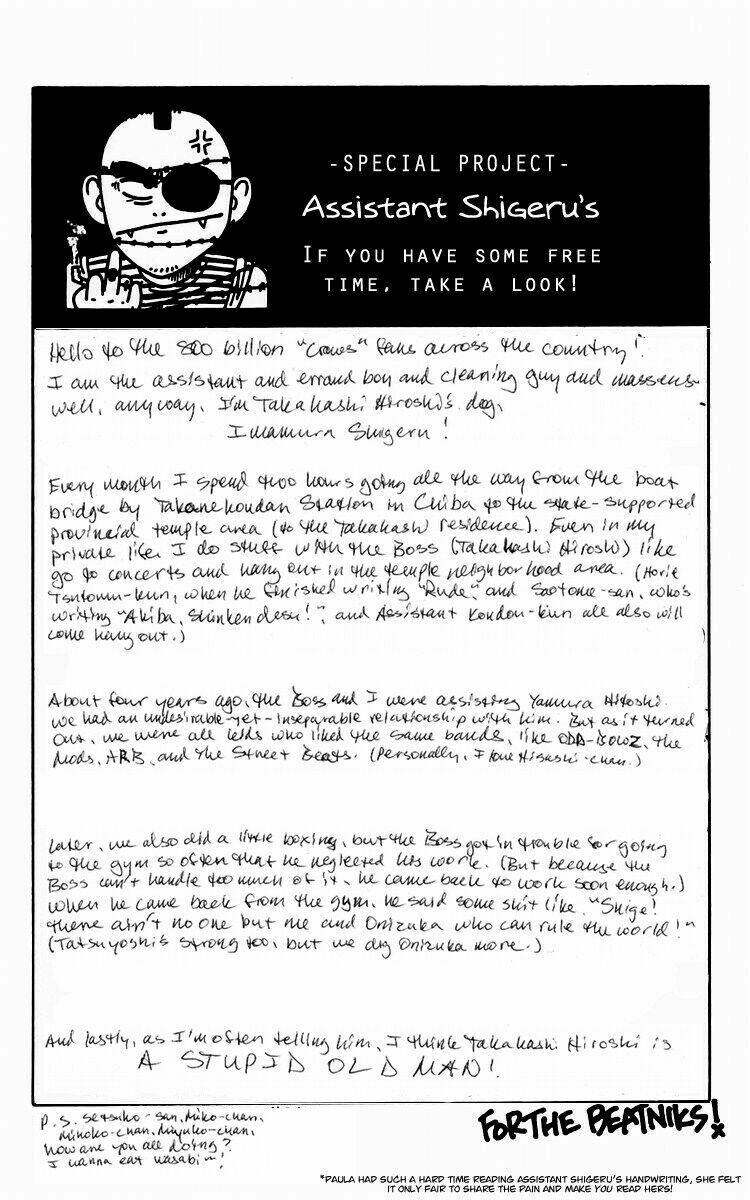 -SPECIAL PROJECT-
Assistant Shigeru's
IF YOU HAVE SOME FREE
TIME, TAKE A LOOK!
Hello to the 800 billion "Crows" fans across the country!
I am the assistant and errand boy and cleaning guy and masseus-
well, anyway, I'm Takahashi Hiroshi's dog,
Imamura Shigeru!
Every month I spend two hours going all the way from the boat
bridge by Takanekoudan Station in Chiba to the state-supported
provincial temple area (to the Takahashi residence). Even in my
private life I do stuff with the Boss (Takahashi Hiroshi) like
go to concerts and hang out in the temple neighborhood area. (Horie
Tsutomu-kun, when he finished writing "Rude", and Saotome-san, who's
writing "Akiba, Shinken desu!", and Assistant Kondou-kun all also will
come hang out.)
About four years ago, the Boss and I were assisting Yamura Hitoshi.
We had an undesirable-yet-inseparable relationship with him. But as it turned
out, we were all kids who liked the same bands, like ODD-BOWZ, the
Mods, ARB, and the Street Beats. (Personally, I love Hisashi-chan.)
Later, we also did a little boxing, but the Boss got in trouble for going
to the gym so often that he neglected his work. (But because the
Boss can't handle too much of it, he came back to work soon enough.)
When he came back from the gym, he said some shit like, "Shige!
There ain't no one but me and Onizuka who can rule the world!"
(Tatsuyoshi's strong too, but we dig Onizuka more.)
And lastly, as I'm often telling him, I think Takahashi Hiroshi is
A STUPID OLD MAN!
P.S. Setsuko-san, Miko-chan,
Mihoko-chan, Miyuko-chan,
how are you all doing?
I wanna eat wasabi~!
FOR THE BEATNIKS!
*PAULA HAD SUCH A HARD TIME READING ASSISTANT SHIGERU'S HANDWRITING, SHE FELT
IT ONLY FAIR TO SHARE THE PAIN AND MAKE YOU READ HERS!